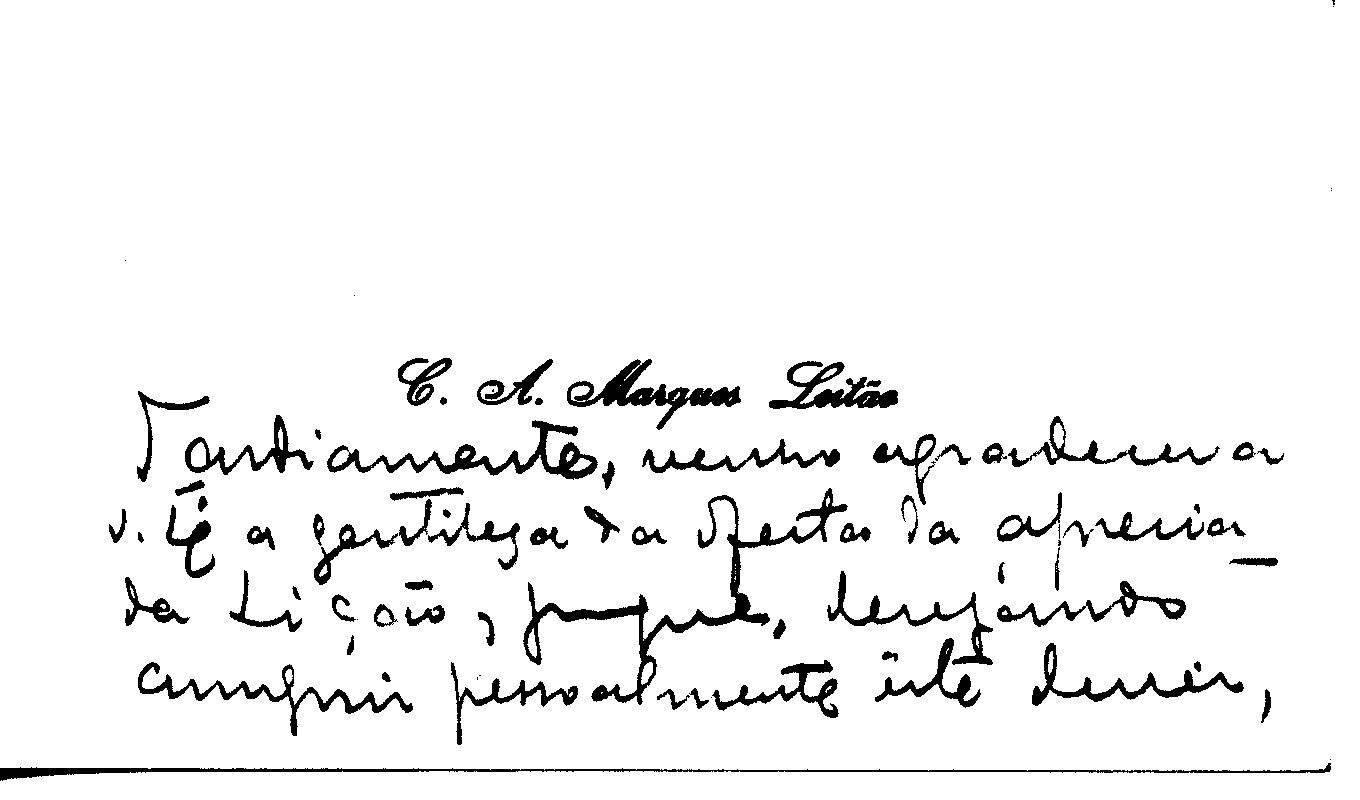 C. A. Marques Leitão
Tardiamente, venho agradecer a
v. Exª a gentileza da oferta da aprecia-
da Lição, porque, desejando
cumprir pessoalmente êste dever,